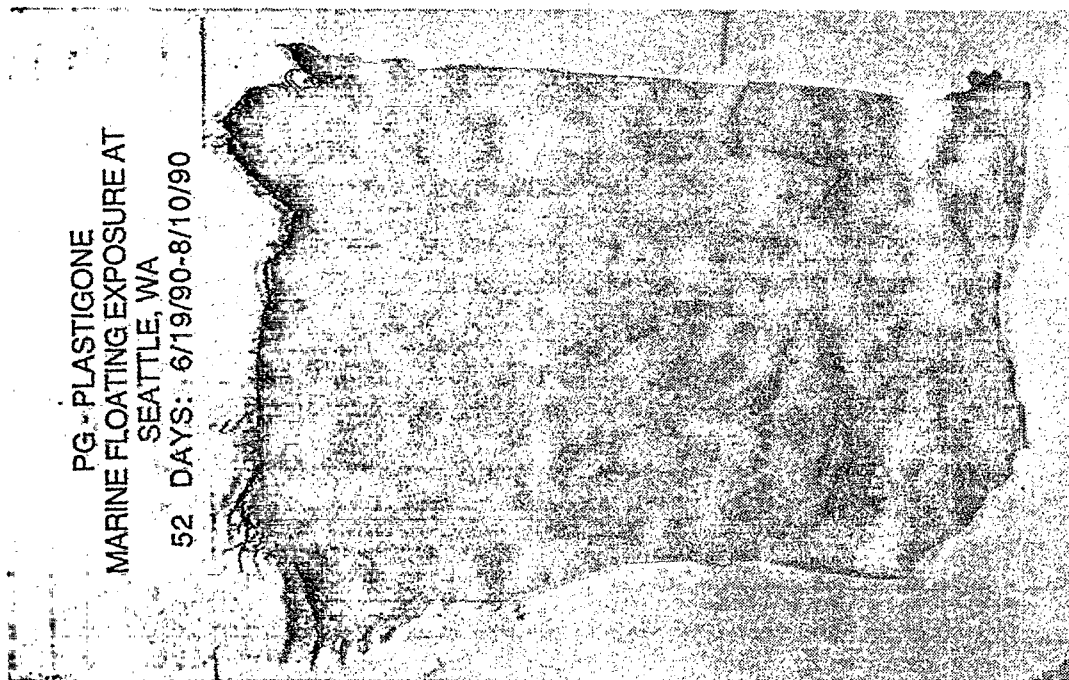 PG - PLASTIGONE
MARINE FLOATING EXPOSURE AT
SEATTLE, WA
52 DAYS: 6/19/90-8/10/90